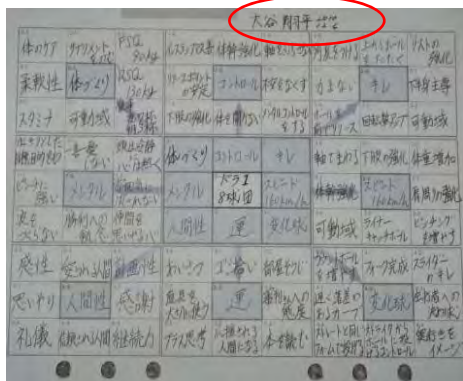 大谷翔平
体のケア サプリメントをのむ FSQ 90kg インステップ改善 体幹強化 軸をぶらさない 角度をつける 上からボールをたたく リストの強化
柔軟性 体づくり RSQ 130kg リリースポイントの安定 コントロール 不安をなくす 力まない キレ 下半身主導
スタミナ 可動域 下肢の強化 体を開かない メンタルコントロールをする ボールを前でリリース 回転数アップ 可動域
一喜一憂しない 頭は冷静に心は熱く 体づくり コントロール キレ 軸でまわる 下肢の強化 体重増加
ピンチに強い メンタル 雰囲気に流されない メンタル ドラ1 8球団 スピード160km/h 体幹強化 スピード160km/h 肩周りの強化
波をつくらない 勝利への執念 仲間を思いやる心 人間性 運 変化球 可動域 ライナーキャッチボール ピッチングを増やす
感性 愛される人間 計画性 あいさつ ゴミ拾い 部屋そうじ カウントボールを増やす フォーク完成 スライダーのキレ
思いやり 人間性 感謝 道具を大切に使う 運 審判さんへの態度 遅く落差のあるカーブ 変化球 左打者への決め球
礼儀 信頼される人間 継続力 プラス思考 応援される人間になる 本を読む ストレートと同じフォームで投げる ストライクからボールに投げるコントロール 奥行きをイメージ